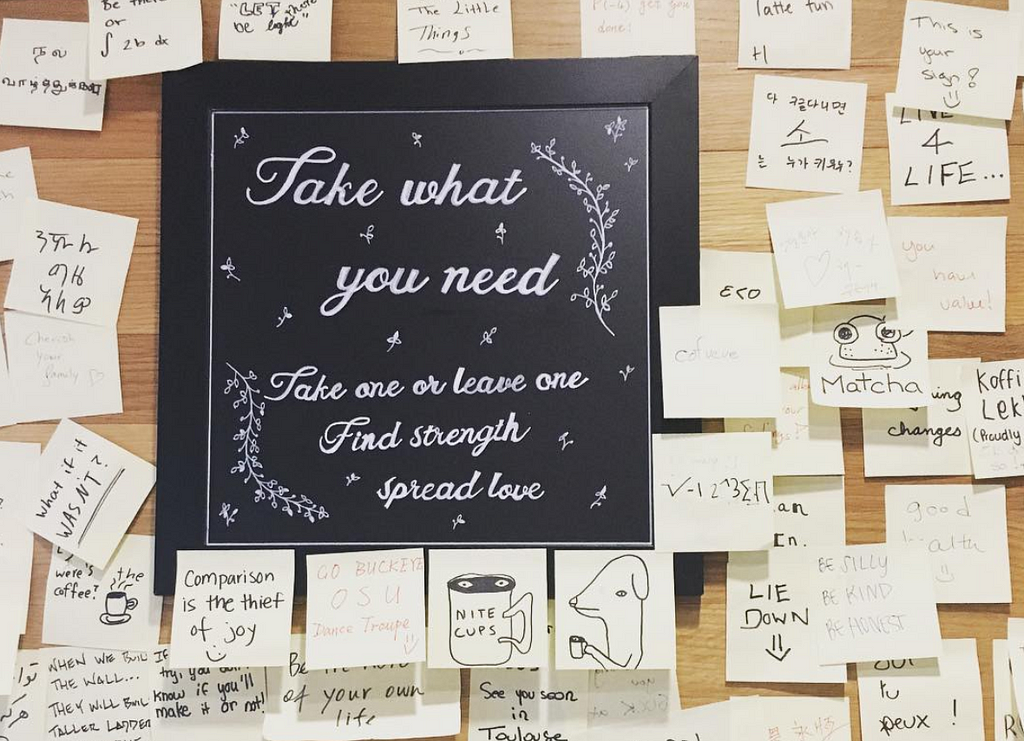 நல
வாழ்த்துக்கள்
or
∫ 2b dx
"LET there
be light"
The Little
Things
done!
latte fun
This is
your
sign!
LIVE
4
LIFE...
소
는 누가 키우누?
Take what
you need
Take one or leave one
Find strength
spread love
Cherish
your
family
what if it
WASN'T?
were's the
coffee?
εco
cofveve
you
have
value!
Matcha
changes
Koffi
Lek
(Proudly
√-1 2^3 Σ Π
good
health
LIE
DOWN
BE SILLY
BE KIND
BE HONEST
Comparison
is the thief
of joy
GO BUCKEYE
OSU
Dance Troupe
NITE
CUPS
WHEN WE BUIL
THE WALL...
THEY WILL BUIL
TALLER LADDER
IF
try, you
know if you'll
make it or not!
of your own
life
See you soon
in
Toulouse
tu
peux !